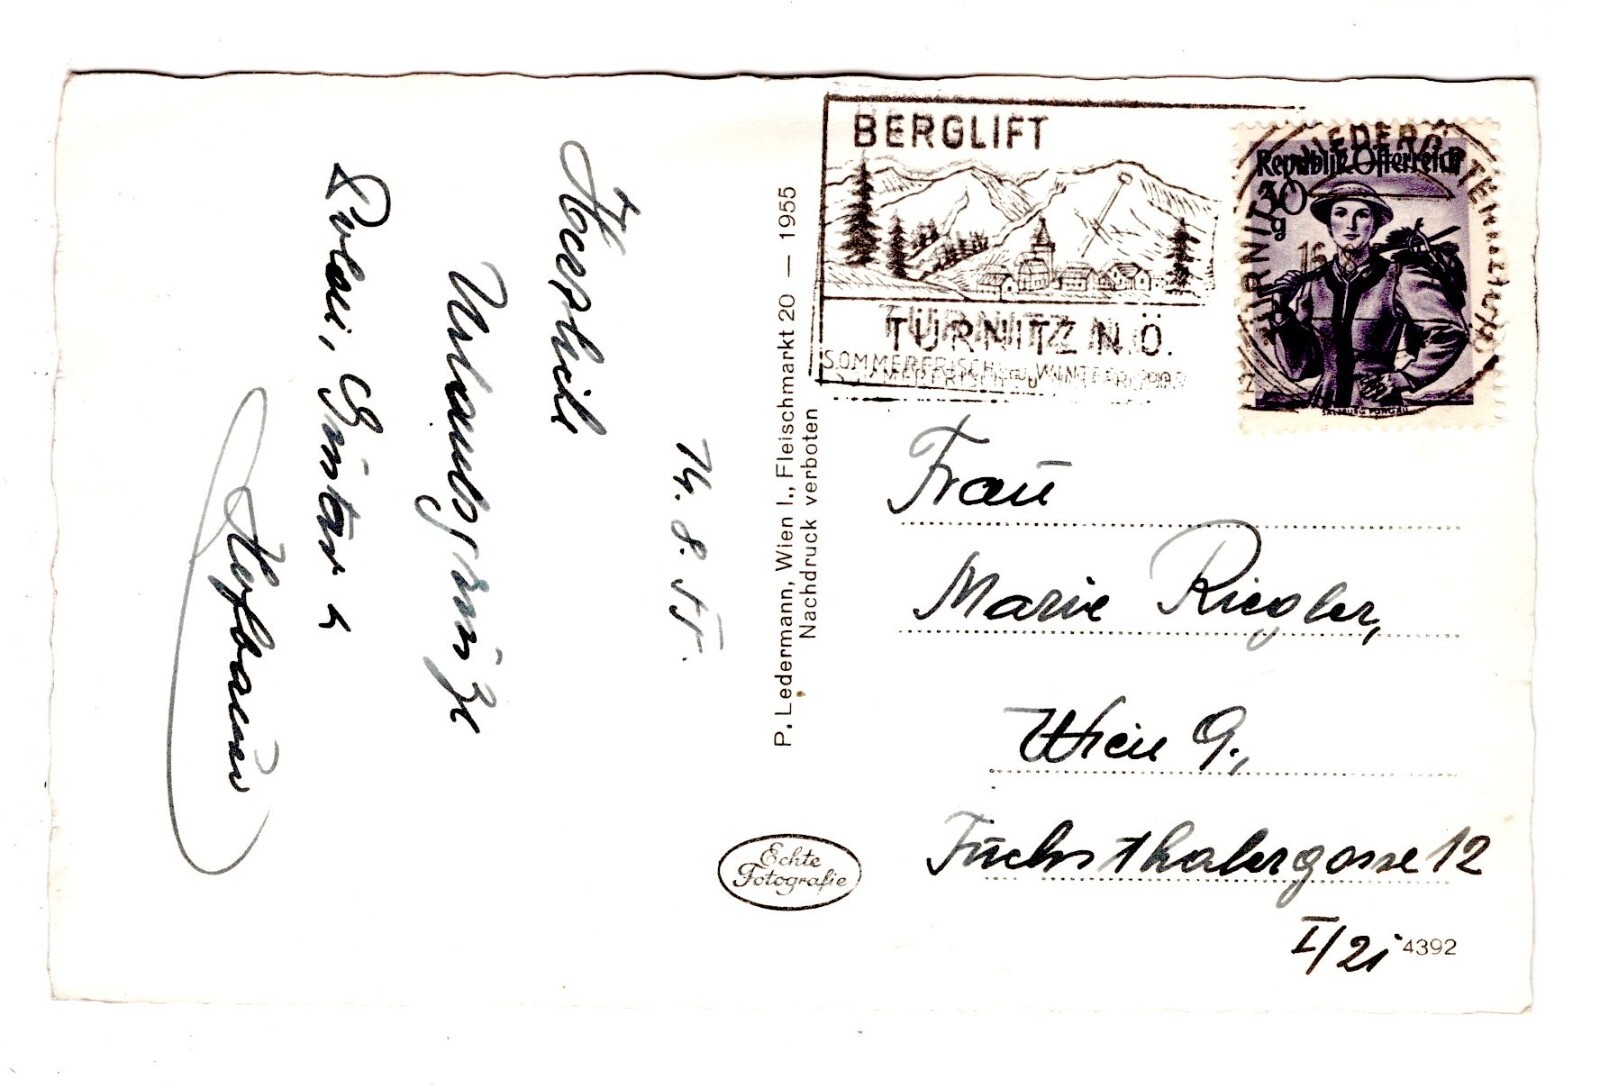 14. 8. 55.
Herzlich
Urlaubsgrüße
Günter
Hofbauer
P. Ledermann, Wien I., Fleischmarkt 20 — 1955
Nachdruck verboten
Echte
Fotografie
BERGLIFT
TÜRNITZ N.Ö.
SOMMERFRISCHE u. WINTERSPORT
Republik Österreich
30
g
TÜRNITZ
NIEDERÖSTERREICH
16
SALZBURG PONGAU
Frau
Marie Riegler,
Wien 9.,
Fuchsthalergasse 12
I/21
4392